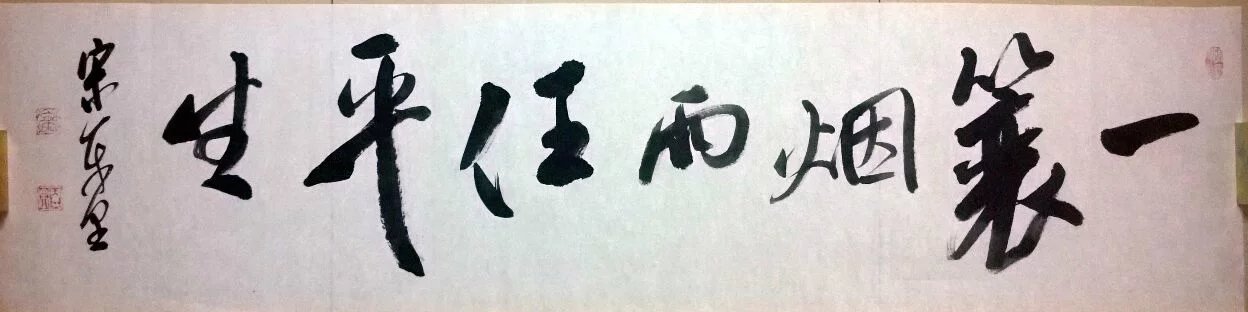 一簑烟雨任平生
宋